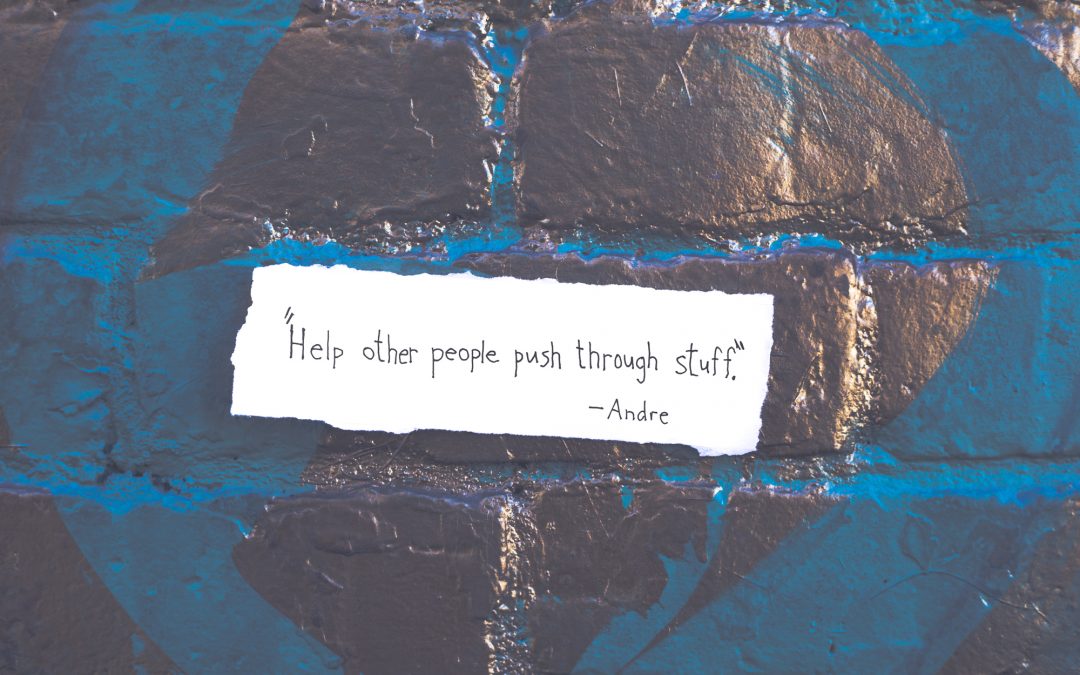 "Help other people push through stuff."
—Andre